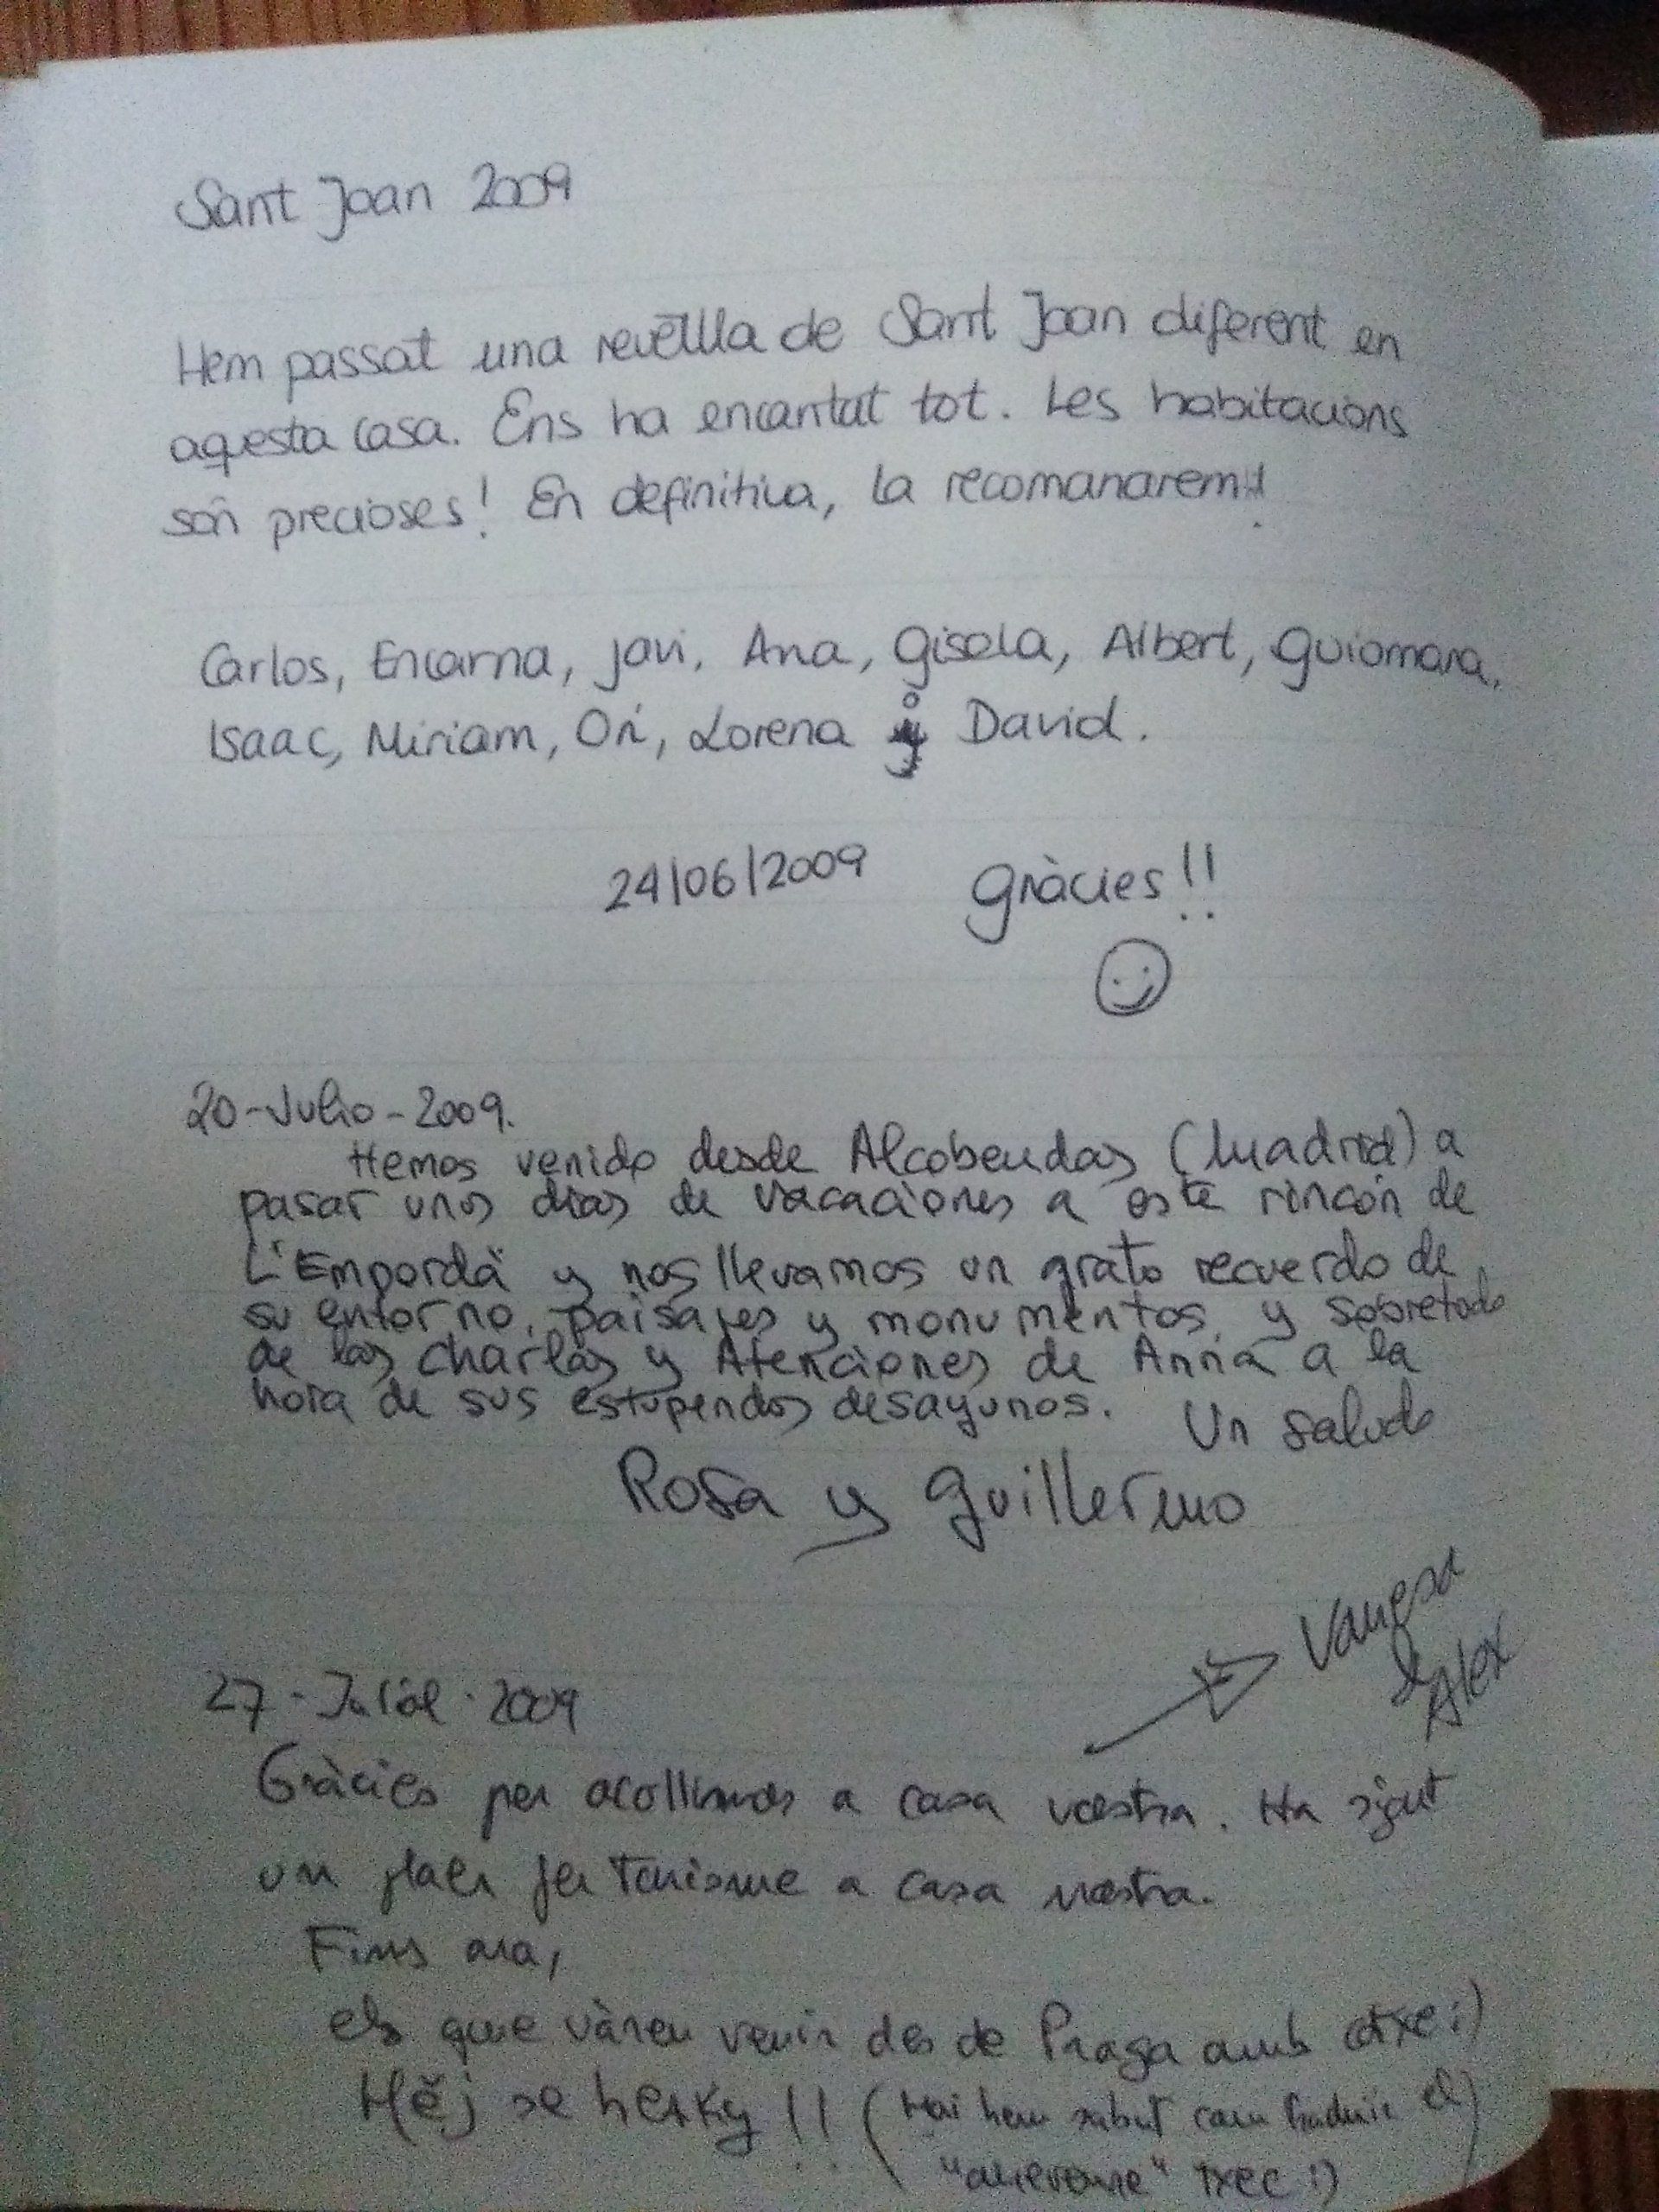 Sant Joan 2009
Hem passat una revetlla de Sant Joan diferent en
aquesta casa. Ens ha encantat tot. Les habitacions
són precioses! En definitiva, la recomanarem!
Carlos, Encarna, Javi, Ana, Gisela, Albert, Guiomara,
Isaac, Miriam, Ori, Lorena i David.
24/06/2009 Gràcies!!
20-Julio-2009.
Hemos venido desde Alcobendas (Madrid) a
pasar unos dias de vacaciones a este rincón de
L'Empordà y nos llevamos un grato recuerdo de
su entorno, paisajes y monumentos, y sobretodo
de las charlas y Atenciones de Anna a la
hora de sus estupendos desayunos. Un saludo
Rosa y Guillermo
27-Juliol-2009
Vanesa
& Alex
Gràcies per acollirnos a casa vostra. Ha sigut
un plaer fer turisme a casa nostra.
Fins ara,
els que vàreu venir des de Praga amb cotxe :)
Měj se hezky!! (Mai hem sabut com traduir el
txec :)